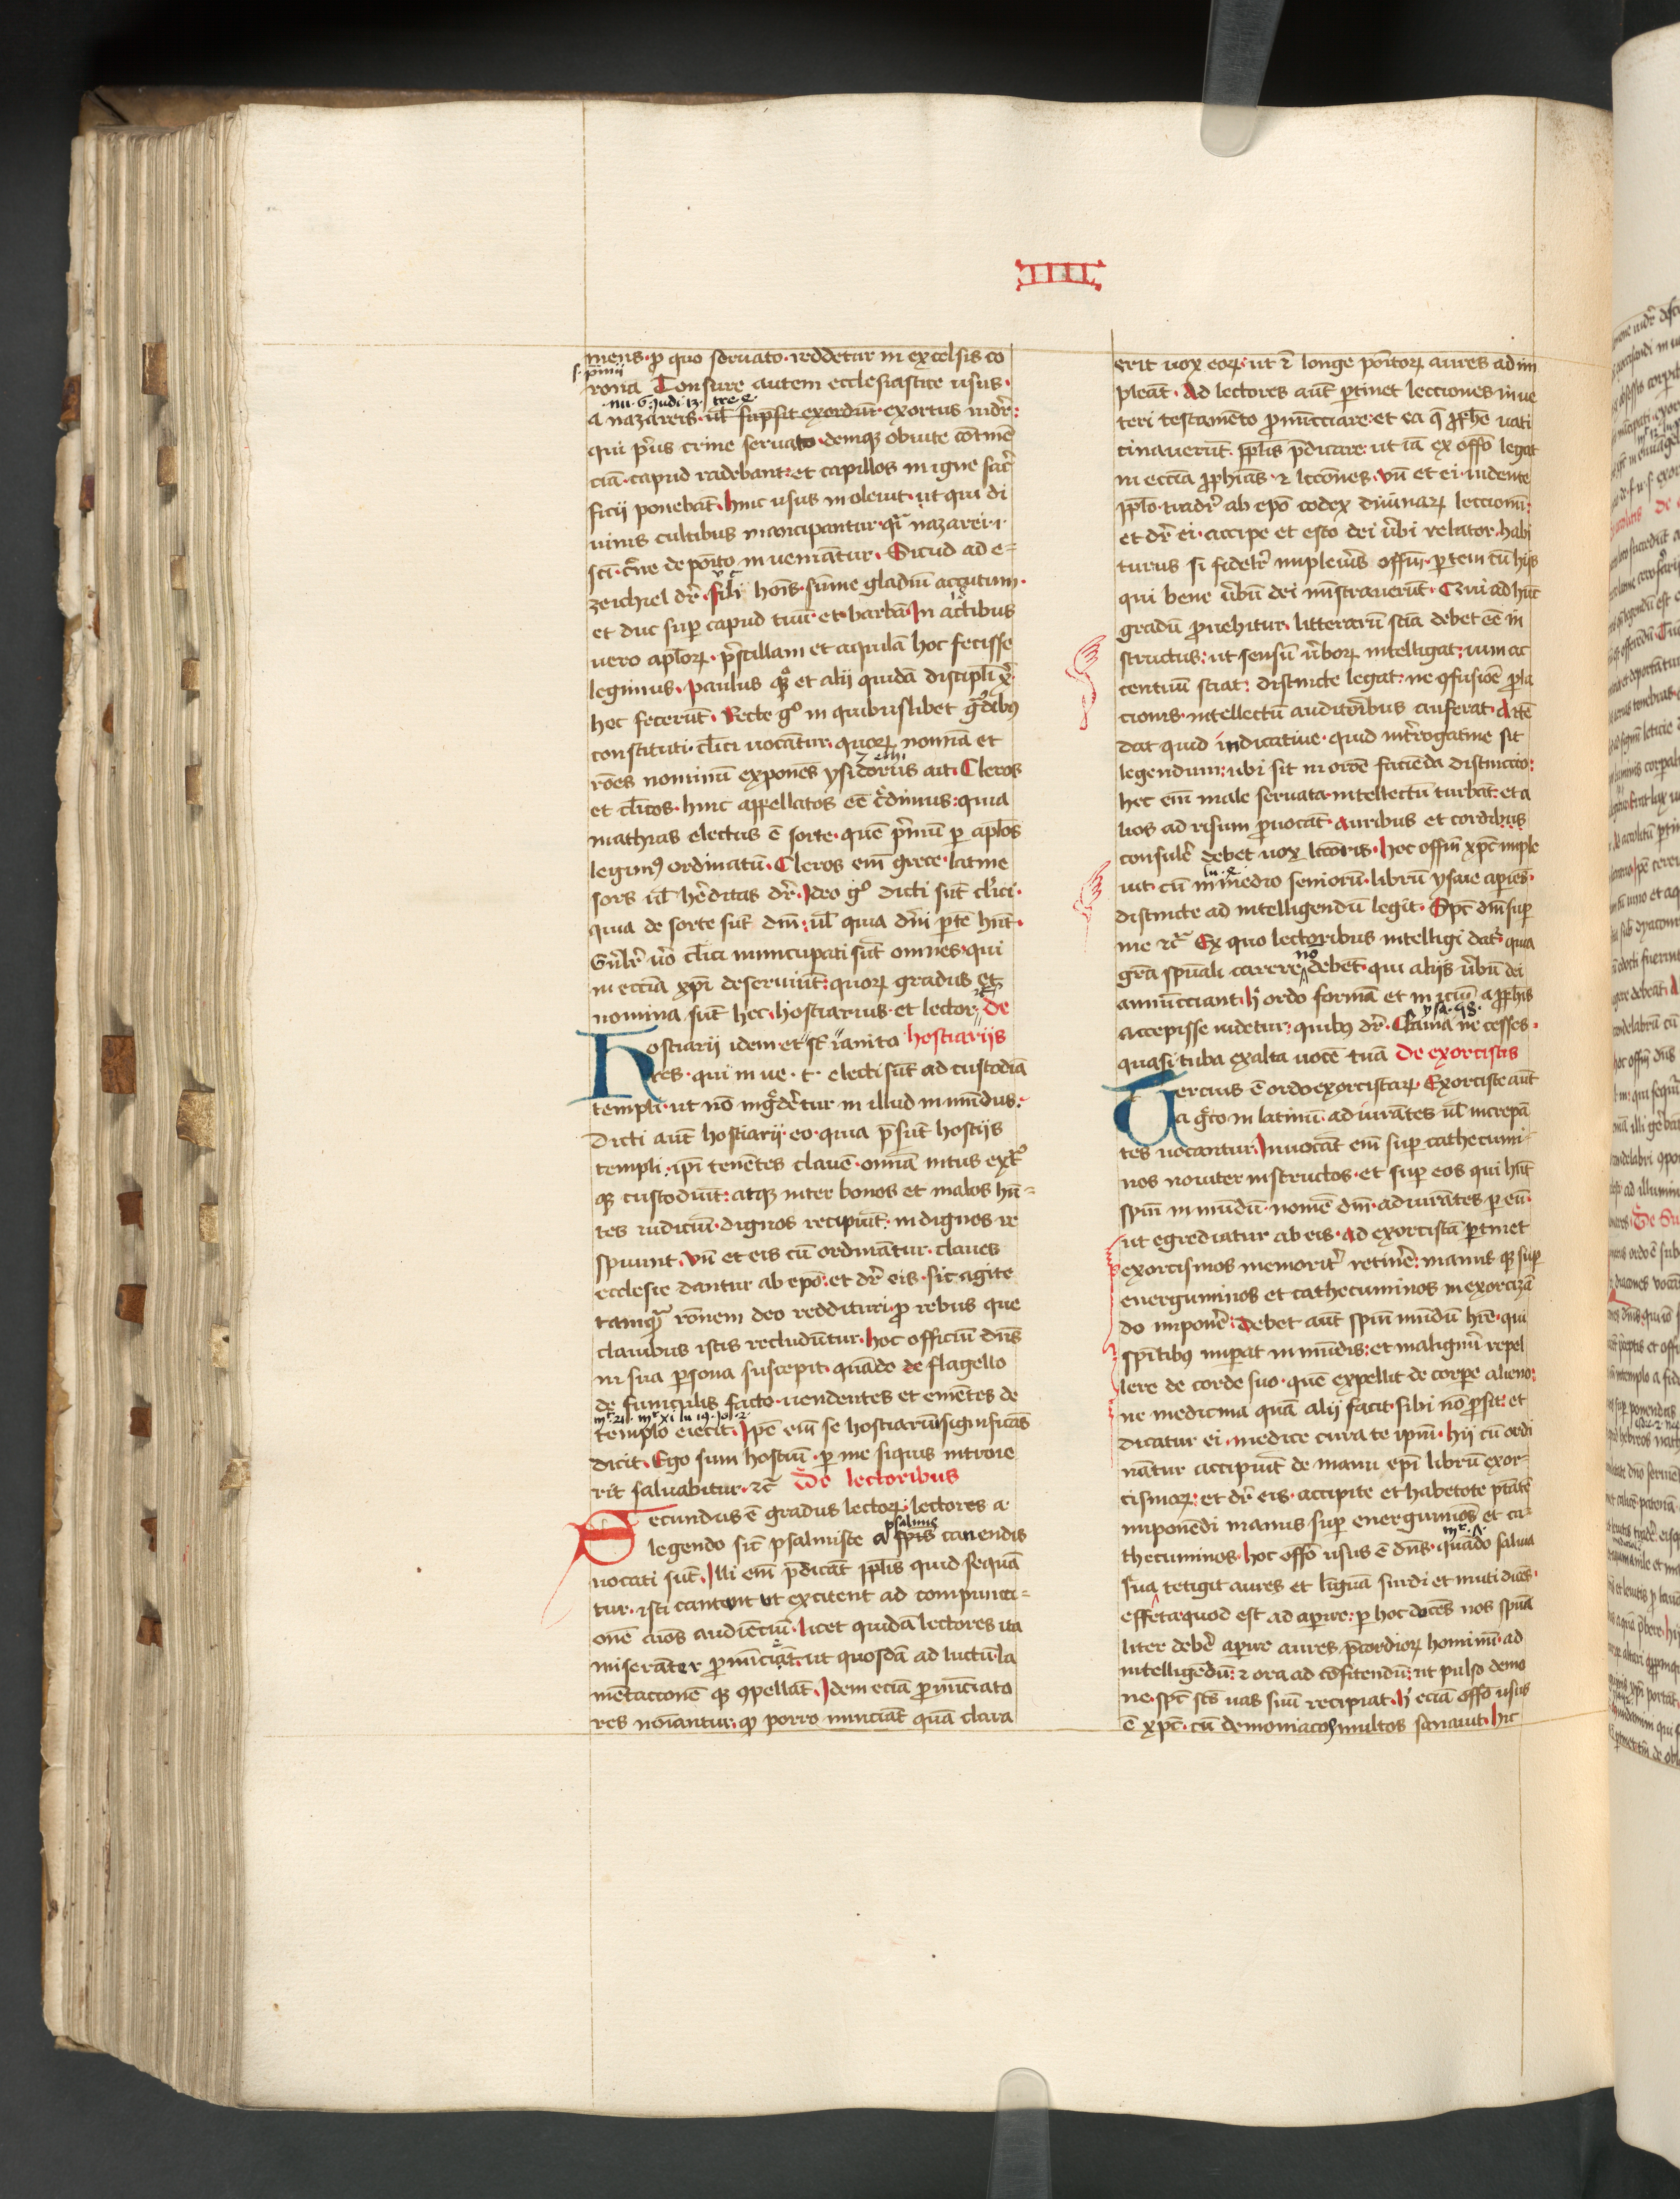 IIII
mens. p quo seruato. reddetur in excelsis co
s. pmii
rona Tonsure autem ecclesiastice usus.
nu. 6. Judi. 13. tre. 4
a nazareis. ul supsit exordiū. exortus uidr̄:
qui prius crine seruato. demūqȝ ob uite cōtinē
ciā. capud radebant: et capillos in igne sacri
ficij ponebāt. hinc usus inoleuit. ut qui di
uinis cultibus mancipantur. qͣi nazarei. i.
sci. cͥne deposito inueniātur. Sicud ad e-
zechiel dr̄. fili hoīs. sume gladiū accutum.
et duc sup capud tuū. et barbā. In actibus
uero aplōꝝ. priscillam et aquilā hoc fecisse
legimus. paulus qͦqȝ et alij quidā discipli xͥ.
hec fecerūt. Recte gͦ in quibuslibet gͣdibꝰ
constituti. clīci uocātur. quoꝝ nomīa et
rōes nominū exponēs ysidorus 7 ethi. ait. Cleros
et clicos. hinc appellatos eē cͥdimus: quia
mathias electus ē sorte. quē pͥmū p aplōs
legimꝰ ordinatū. Cleros em̄ grece. latine
sors ul hēditas dr̄. Ideo gͦ dicti sūt clīci.
quia de sorte sūt dn̄i: ul quia dn̄i ptē hn̄t.
Gn̄lr̄ uͦo clīci nuncupati sūt omnes. qui
in eccīa xp̄i deseruiūt: quoꝝ gradus et
nomina sūt hec. hostiarius. et lector. 7c̄ De
Hostiarij idem et sūt ianito hostiarijs
res. qui in ue. t. electi sūt ad custodiā
templi. ut nō ingͣderetur in illud inmūdus.
Dicti aūt hostiarij. eo. quia pͣsūt hostijs
templi. ipī tenētes clauē. omīa intus extͣ
qȝ custodiūt: atqȝ inter bonos et malos hn̄-
tes iudiciū. dignos recipiūt. indignos re
spuunt. vn̄ et eis cū ordināntur. claues
ecclesie dantur ab epō: et dr̄ eis. sic agite
tamqͣ rōnem deo reddituri. p rebus que
clauibus istis recludūtur. hoc officiū dn̄s
in sua psona suscepit. quādo de flagello
de funiculis facto. uendentes et emētes de
mͬ. 21. mͬ. xi. lu. 19. Jo. 2.
templo eiecit. Ipē em̄ se hostiariū significās
dicit. Ego sum hostiū. p me siquis introie
rit saluabitur. 7c̄ De lectoribus
Secundus ē gradus lectoꝝ. lectores a
legendo sūt psalmiste a psalmis canendis
uocati sūt. Illi em̄ pdicāt pplis quid sequā
tur. isti cantant ut excitent ad compunci-
onē aīos audiēciū. licet quidā lectores ita
miserāter pnūciāt. ut quosdā ad luctū. la
mētaccionē qȝ ꝯpellāt. Idem eciā pnūciato
res noīantur. qȝ porro nunciāt quā clara
erit uox eoꝝ: ut 7 longe pōitoꝝ aures adim
pleāt. Ad lectores aūt ptinet lecciones in ue
teri testamēto pnūcciare: et ea q̄ pphē uati
cinauerūt. pplis pdicare: ut iā ex offō legat
in eccīa pphīas. 7 lccōnes. vn̄ et ei. uidente
pplo. tradr̄ ab epō codex diuinaꝝ leccionū:
et dr̄ ei. accipe et esto dei ubi relator. habi
turus si fidelr̄ impleuis offm̄. ptem cū hijs
qui bene ubū dei ministrauerūt. Qui ad hūc
gradū puehitur. litterarū sciā debet eē in
structus: ut sensū uboꝝ intelligat: uim ac
centuū sciat: distincte legat: ne ꝯfusiōe pla
cionis. intellectū auditoribus auferat. Attē
dat quid indicatiue. quid int̄rogatiue sit
legendum: ubi sit in ordē faciēda distinccio:
hec em̄ male seruata. intellectū turbāt. et a
lios ad risum puocāt. Auribus et cordibus
consulē debet uox lectoris. hoc offm̄ xpc̄ imple
lu. 4
uit. cū in medio seniorū. librū ysaie apiēs.
distincte ad intelligendū legit. Spc̄ dn̄i sup
me 7c̄ Ex quo lectoribus intelligi datͬ. quia
grā spuali carere nō debēt. qui alijs ubū dei
annūcciant. hͥ ordo formā et iniciū a pphīs
ysa. 58.
accepisse uidetur: quibꝰ dr̄. Clama ne cesses.
quasi tuba exalta uocē tuā De exorcistis
Tercius ē ordo exorcistaꝝ. Exorciste aūt
a gͣco in latinū. adiurātes ul increpā
tes uocantur. Inuocāt em̄ sup cathecumi-
nos nouiter instructos. et sup eos qui hn̄t
spm̄ inmūdū. nomē dn̄i. adiurātes p eū.
ut egrediatur ab eis. Ad exorcistā ptinet
exorcismos memoritͥ retinē: manus qȝ sup
energuminos et cathecuminos in exorcizā
do imponē: debet aūt spm̄ mūdū hr̄e. qui
spītibꝰ impat inmūdis: et malignū repel
lere de corde suo. quē expellit de corpe alieno:
ne medicina quā alij facit. sibi nō psit: et
dicatur ei. medice cura te ipm̄. hij cū ordi
nātur accipiūt de manu epī librū exor-
cismoꝝ: et dr̄ eis. accipite et habetote ptātē
imponēdi manus sup energuminos et ca-
mͬ. 7.
thecuminos. hoc offō usus ē dn̄s. quādo saliua
sua tetigit aures et liguā surdi et muti dicēs.
effeta. quod est ad apire: p hoc docēs nos spūa
liter debē apire aures pcordioꝝ hominū. ad
intelligēdū: 7 ora ad cōfitendū: ut pulso demo
ne. spc̄ scs̄ uas suū recipiat. hͦ eciā offō usus
ē xpc̄. cū demoniacos multos sanauit. hic